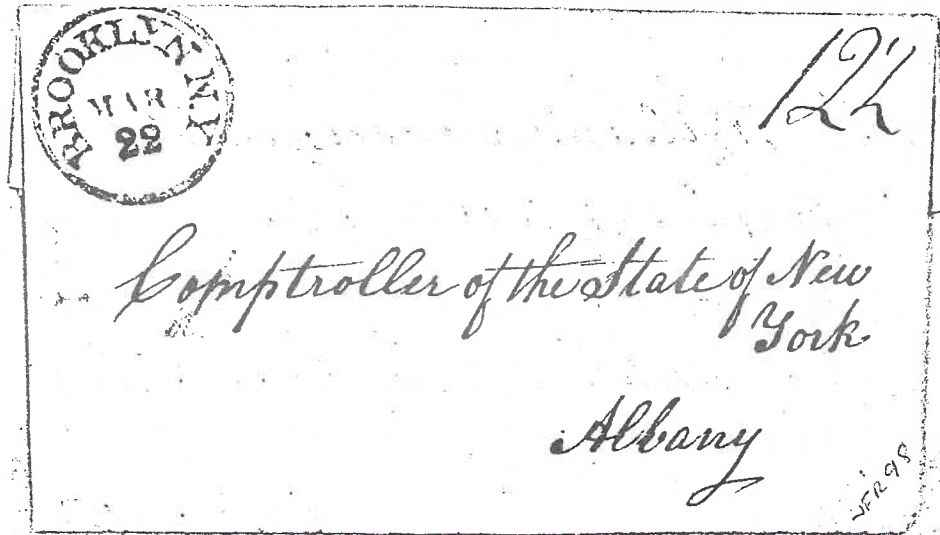 BROOKLYN N.Y.
MAR
22
12½
Comptroller of the State of New
York
Albany